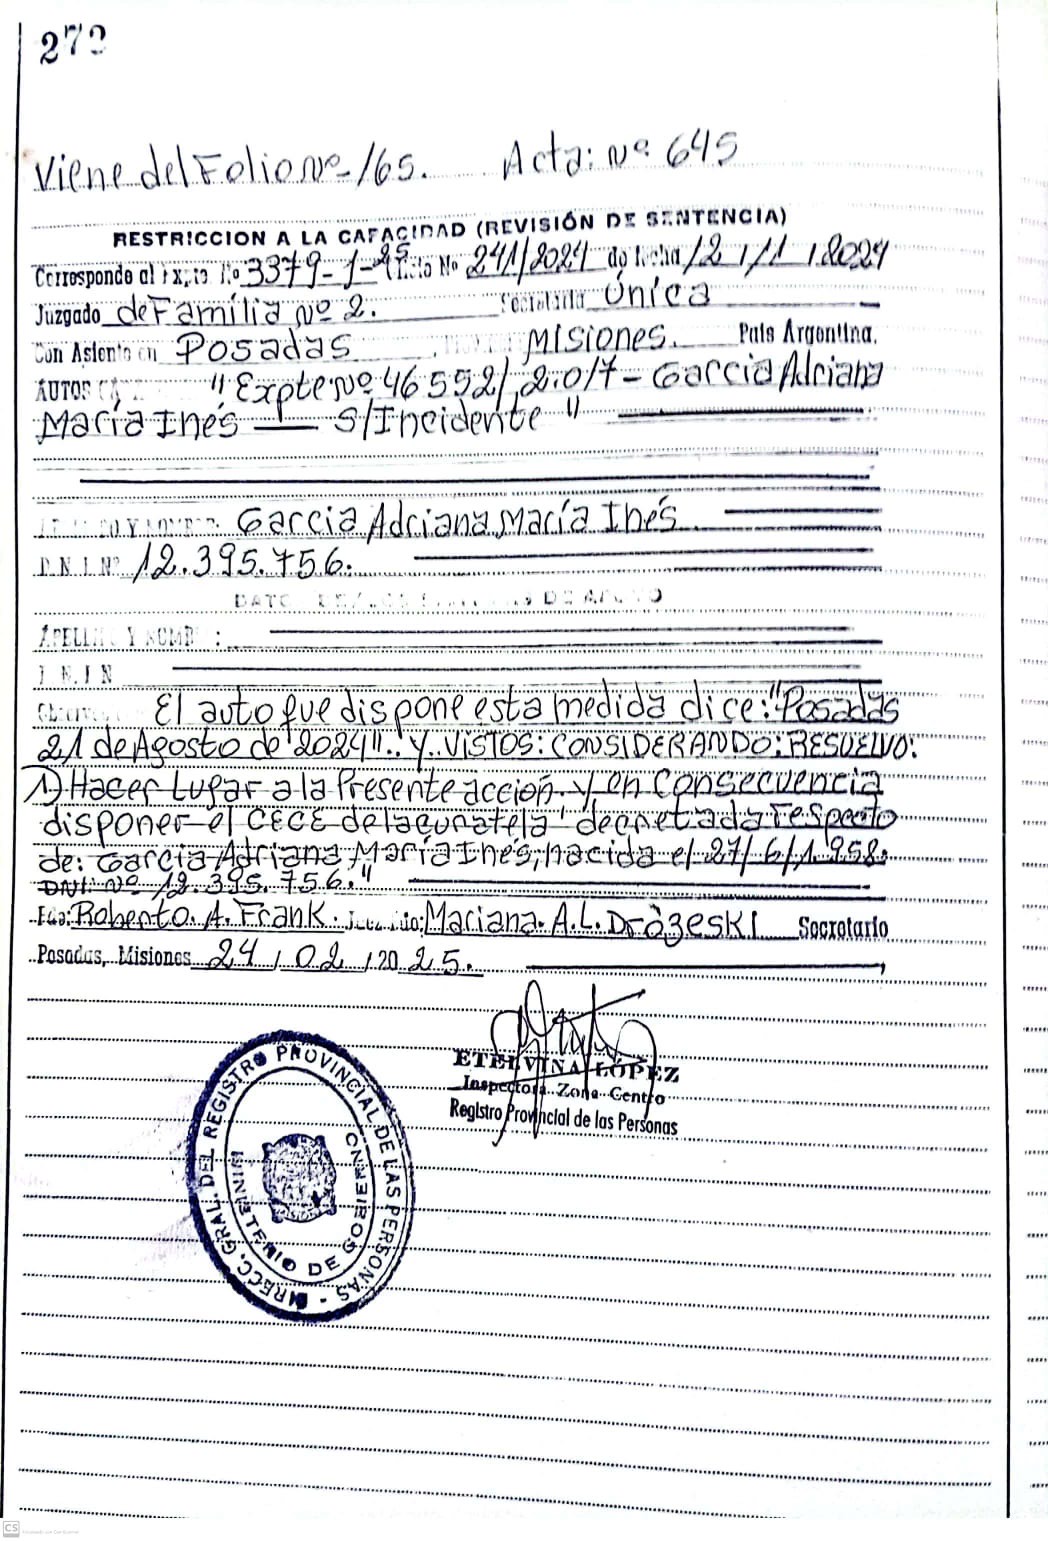 272
Viene del Folio Nº 165. Acta: Nº 645
RESTRICCION A LA CAPACIDAD (REVISIÓN DE SENTENCIA)
Corresponde al Expte. Nº 3379-1-25 Nº 241/2024 de fecha 12/11/2024
Juzgado de Familia Nº 2. Secretaría Única
Con Asiento en Posadas Misiones. País Argentina.
AUTOS "Expte Nº 46592/2017 - Garcia Adriana
María Inés — S/Incidente"
Y NOMBRE: Garcia Adriana María Inés
D.N.I. Nº 12.395.756.
DATO DE APOYO
APELLIDO Y NOMBRE:
D.N.I. N
El auto que dispone esta medida dice: "Posadas
21 de Agosto de 2024". Y VISTOS: CONSIDERANDO: RESUELVO:
1) Hacer Lugar a la Presente acción y en Consecuencia
disponer el CECE de la curatela decretada respecto
de: Garcia Adriana María Inés, nacida el 27/6/1958.
DNI: Nº 12.395.756."
Fdo: Roberto. A. Frank. Mariana. A.L. Drazeski Secretario
Posadas, Misiones 24/02/2025.
ETELVINA LÓPEZ
Inspectora Zona Centro
Registro Provincial de las Personas
DIRECC. GRAL. DEL REGISTRO PROVINCIAL DE LAS PERSONAS -
MINISTERIO DE GOBIERNO
CS